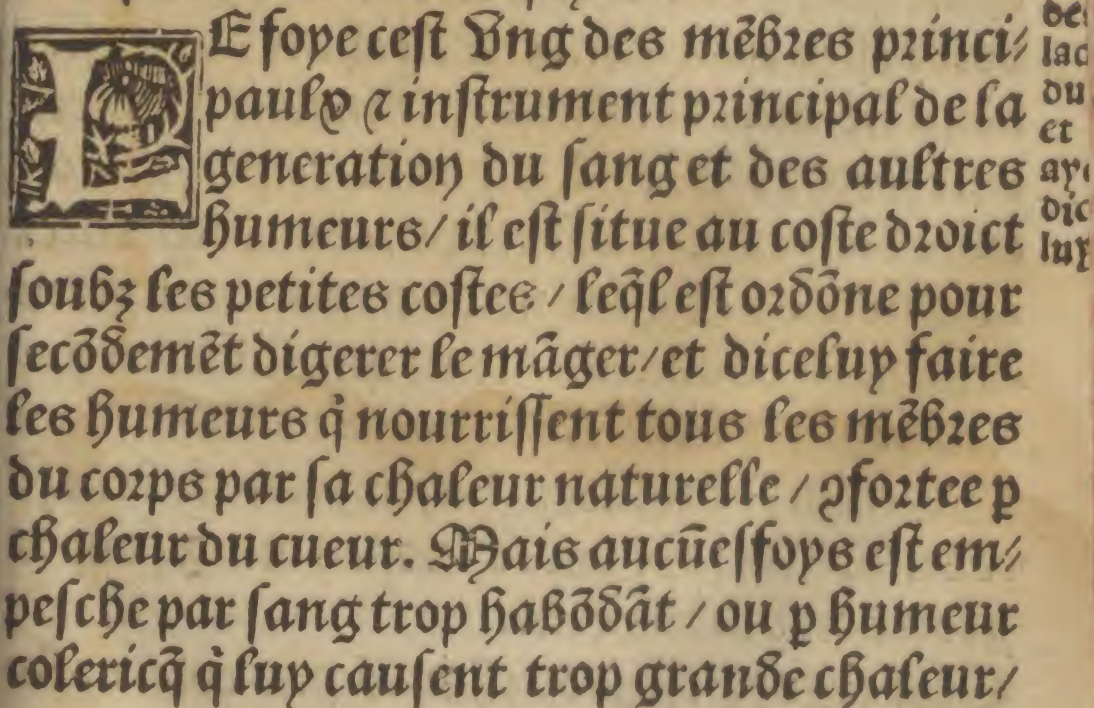 LE foye cest vng des mẽbres princi⸗
paulx ⁊ instrument principal de la
generation du sang et des aultres
humeurs/ il est situe au coste droict
soubz les petites costes / leq̃l est ordõne pour
secõdemẽt digerer le mãger/et diceluy faire
les humeurs q̃ nourrissent tous les mẽbres
du corps par sa chaleur naturelle / ꝯfortee ꝑ
chaleur du cueur. Mais aucũesfoys est em⸗
pesche par sang trop habõdãt / ou ꝑ humeur
colericq̃ q̃ luy causent trop grande chaleur/
du
et